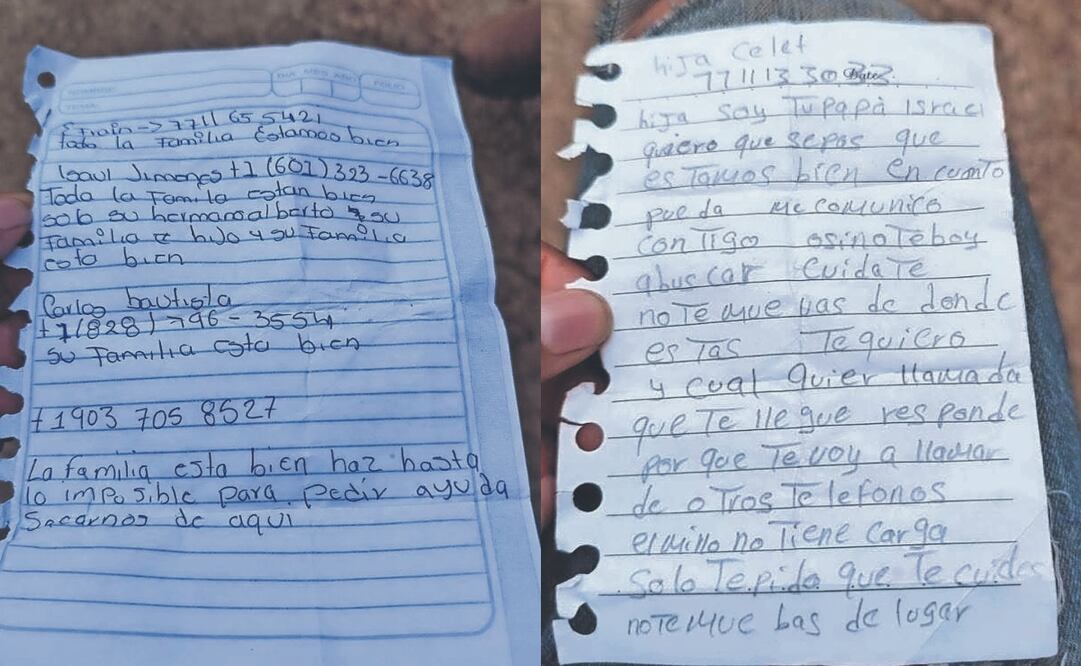 DIA MES AÑO
FOLIO
NOMBRE
TEMA
Efrain -> 7711 65 5421
toda la familia Estamos bien
Isaul Jimenes +1 (601) 323-6638
Toda la Familia estan bien
solo su hermano alberto y su
familia e hijo y su Familia
esta bien
Carlos bautista
+1 (828) 796-3554
su Familia esta bien
+1 903 705 8527
La familia esta bien haz hasta
lo imposible para pedir ayuda
Sacarnos de aqui
hija Celet
7711133033
hija soy Tu papá Israel
quiero que sepas que
estamos bien en cuanto
pueda me comunico
con tigo osino te boy
abuscar cuidate
no te mue bas de donde
estas Te quiero
y cual quier llamada
que Te lle gue responde
por que Te voy a llamar
de otros Telefonos
el mio no Tiene carga
Solo Te pido que Te cuides
no te mue bas de lugar